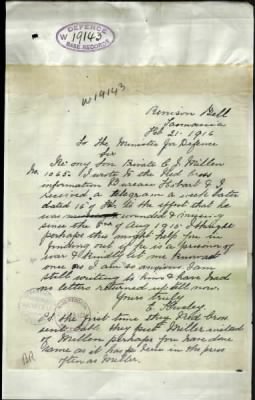 DEFENCE
W 19143
BASE RECORDS
W19143
Tasmania
Feb 21 - 1916
To the Minister for Defence
Sir
Re my Son Private C J Millen
No 1065. I wrote to the Red Cross
information Bureau Hobart & I
received a telegram a week later
dated 15th to the effect that he
was wounded & missing
since the 8th Aug 1915. I thought
perhaps you might help me in
finding out if he is a prisoner of
war & kindly let me know at
once as I am so anxious. I am
still writing to him & have had
no letters returned up till now.
Yours truly
E
At the first time they Red Cross
sent cable they put Miller instead
of Millen perhaps you have done
same as it has been in the press
often as Miller.